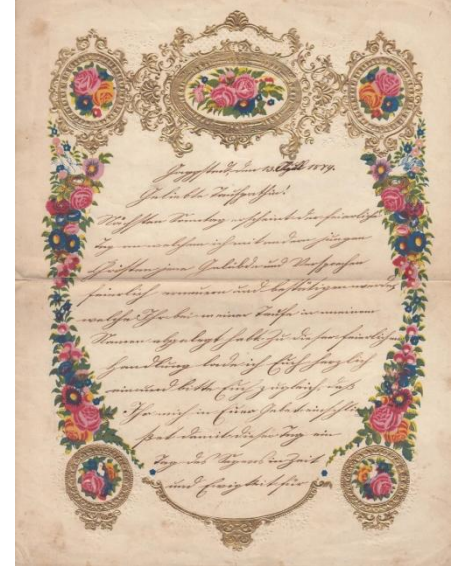 den 13. April 1879.
Geliebte Taufpathin!
Nächsten Sonntag erscheint der feierliche
Tag an welchem ich mit andern jungen
Christen jene Gelübde und Versprechen
feierlich erneuern und bestätigen werde,
welche Ihr bei meiner Taufe in meinem
Namen abgelegt habt. Zu dieser feierlichen
Handlung lade ich Euch herzlich
ein und bitte Euch zugleich, daß
Ihr mich in Euer Gebet einschlie
ßet damit dieser Tag ein
Tag des Segens in Zeit
und Ewigkeit für